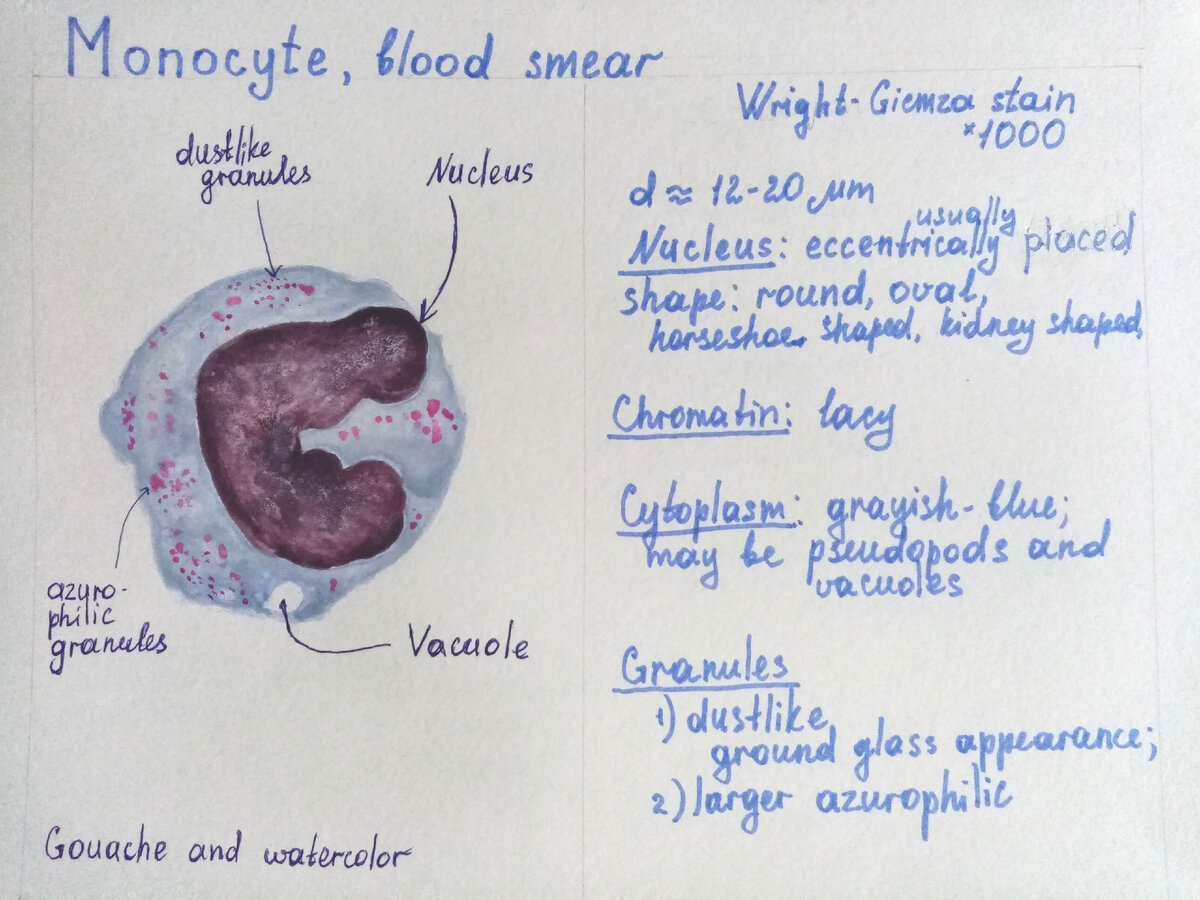 Monocyte, blood smear
dustlike
granules
Nucleus
azuro-
philic
granules
Vacuole
Gouache and watercolor
Wright-Giemza stain
×1000
d ≈ 12-20 µm
usually
Nucleus: eccentrically placed
shape: round, oval,
horseshoe shaped, kidney shaped,
Chromatin: lacy
Cytoplasm: grayish-blue;
may be pseudopods and
vacuoles
Granules
1) dustlike,
ground glass appearance;
2) larger azurophilic